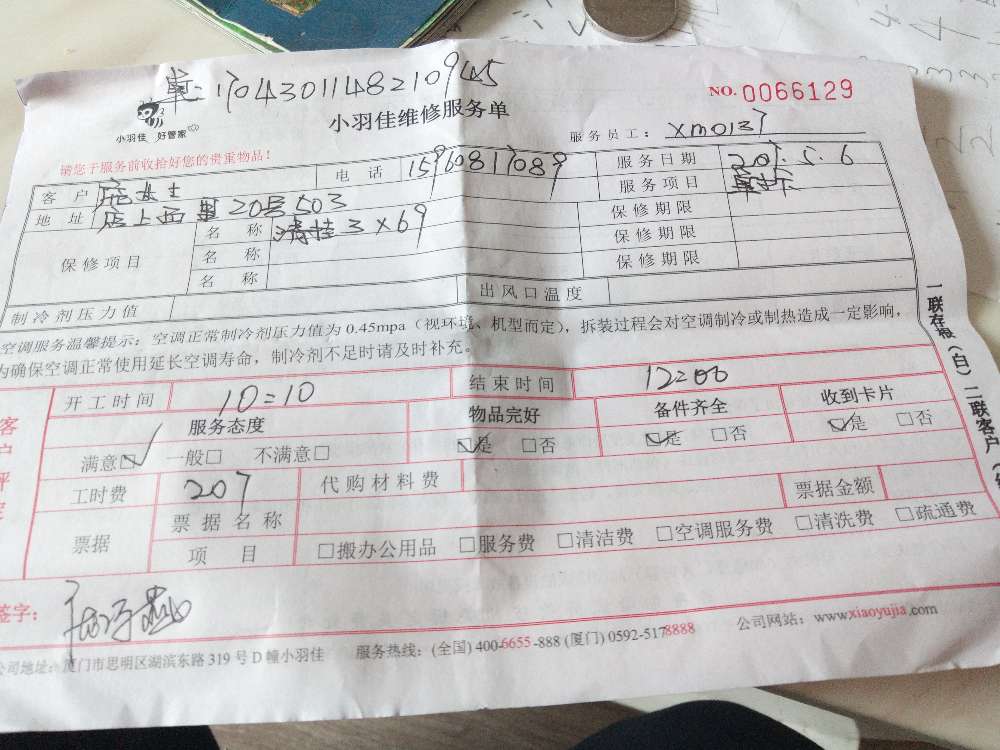 单：17043011482109445
NO.0066129
小羽佳 好管家
小羽佳维修服务单
服务员工：xm0137
请您于服务前收拾好您的贵重物品！
客户 女士 电话 15960817089 服务日期 2017.5.6
地址 店上西里20号503 服务项目
保修项目 名称 清挂3×69 保修期限
名称 保修期限
名称 保修期限
制冷剂压力值 出风口温度
空调服务温馨提示：空调正常制冷剂压力值为0.45mpa（视环境、机型而定），拆装过程会对空调制冷或制热造成一定影响，
为确保空调正常使用延长空调寿命，制冷剂不足时请及时补充。
开工时间 10=10 结束时间 12=00
服务态度 物品完好 备件齐全 收到卡片
满意☑ 一般□ 不满意□ ☑是 □否 ☑是 □否 ☑是 □否
工时费 207 代购材料费 票据金额
票据 票据名称
项目 □搬办公用品 □服务费 □清洁费 □空调服务费 □清洗费 □疏通费
签字：
公司地址：厦门市思明区湖滨东路319号D幢小羽佳 服务热线：(全国) 400-6655-888 (厦门) 0592-5178888 公司网站：www.xiaoyujia.com
一联存根（白）二联客户
客户评定